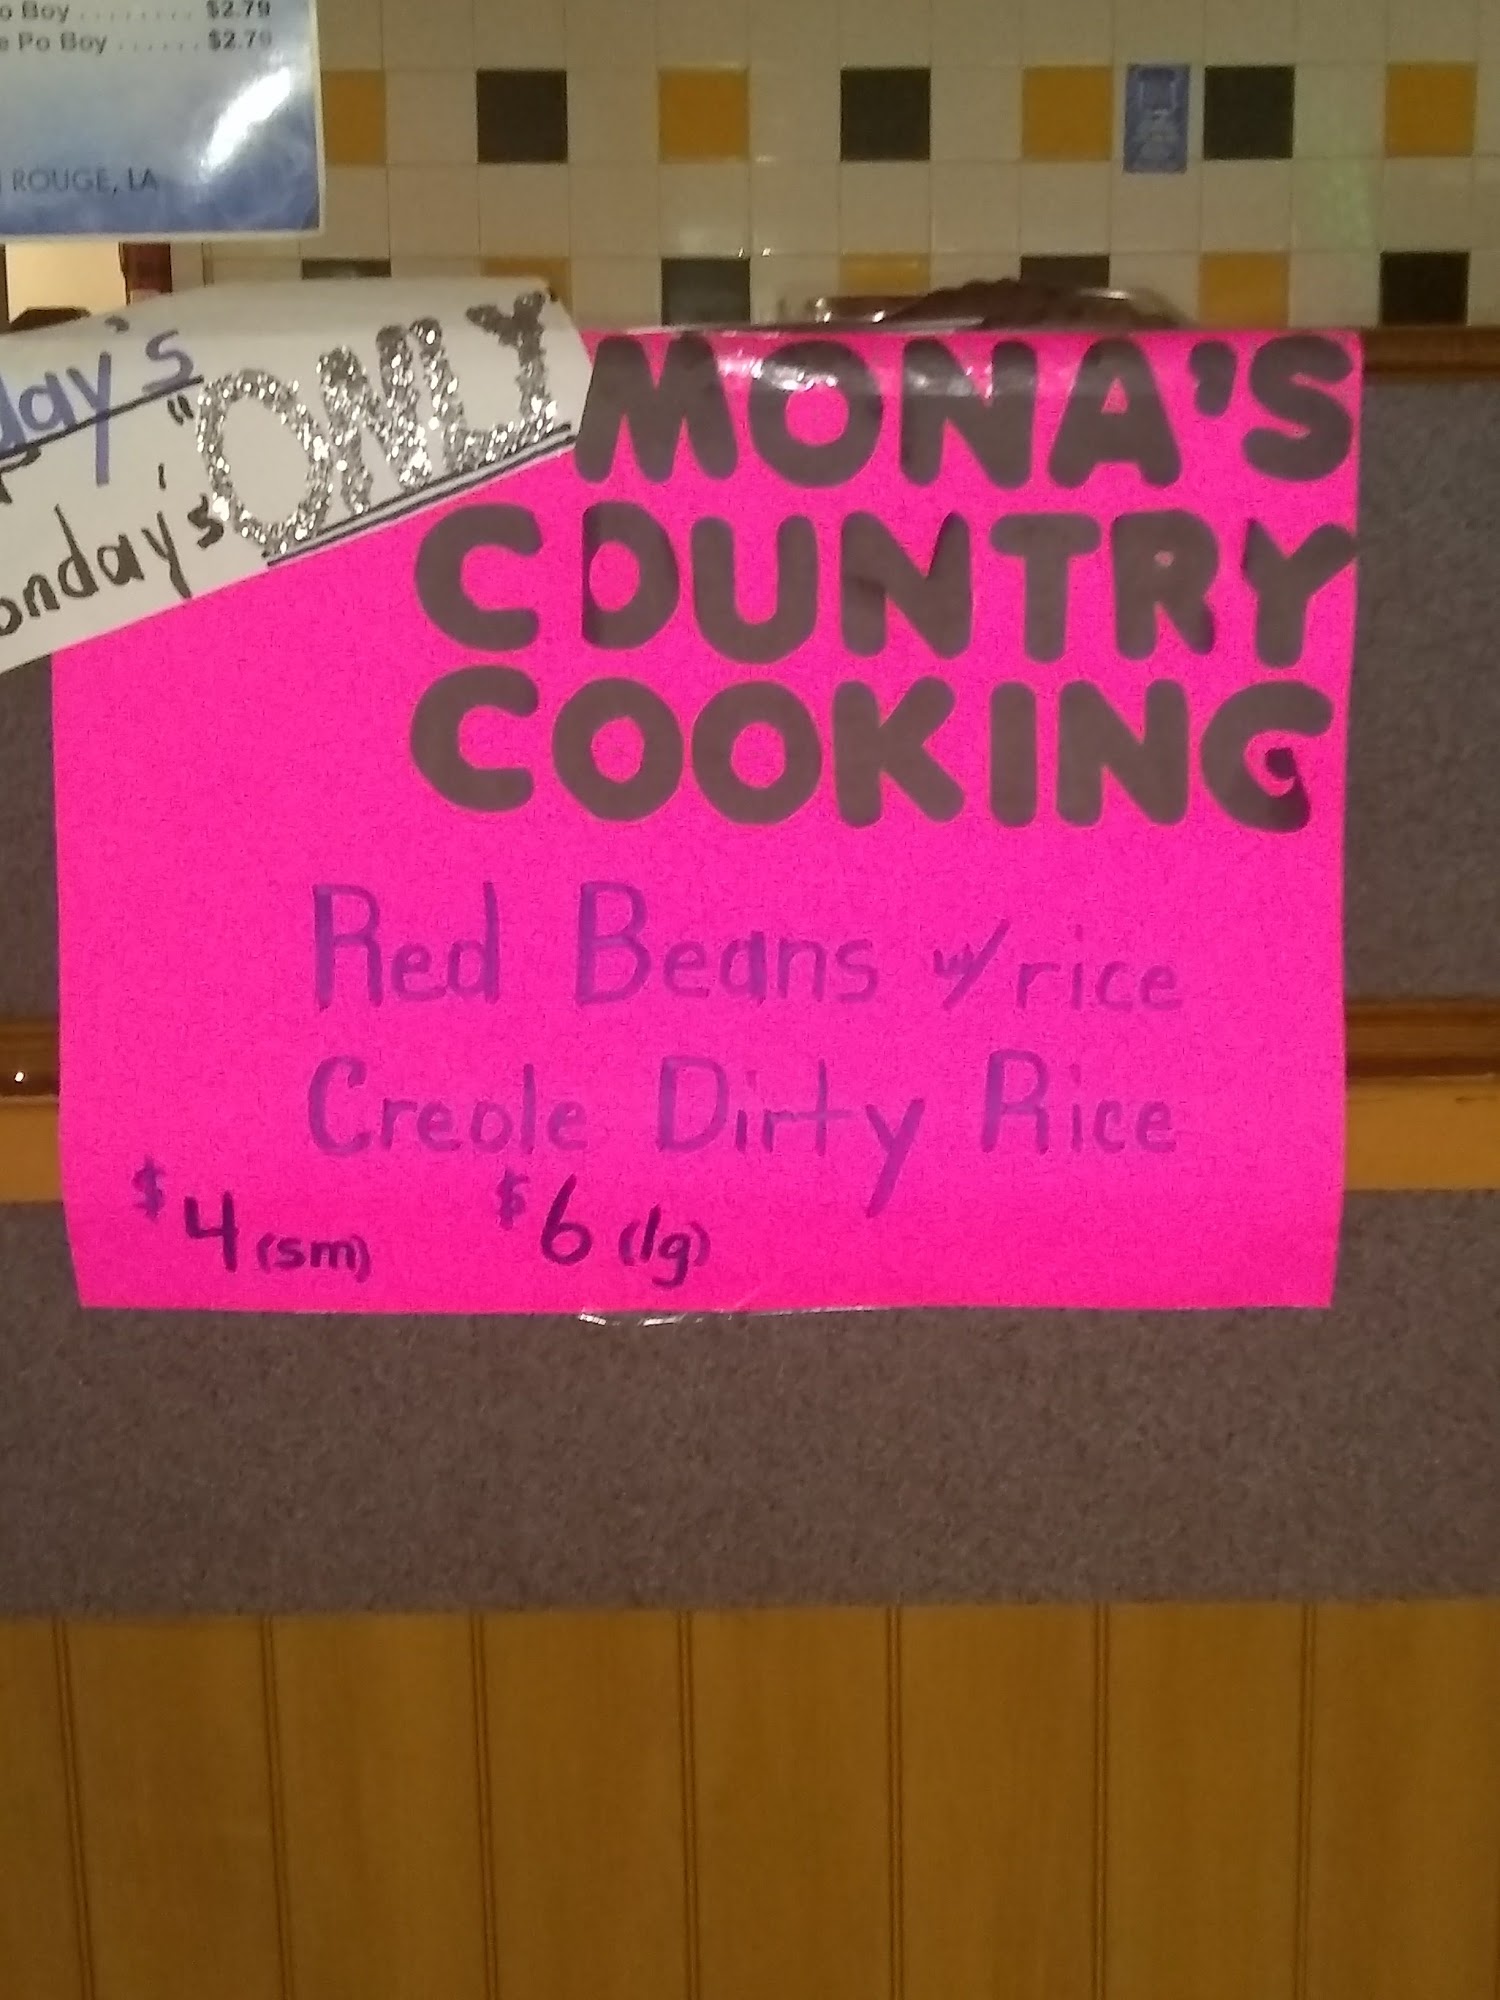 o Boy ........ $2.79
e Po Boy ...... $2.79
ROUGE, LA
day's
onday's "ONLY
MONA'S
COUNTRY
COOKING
Red Beans w/rice
Creole Dirty Rice
$4 (sm) $6 (lg)